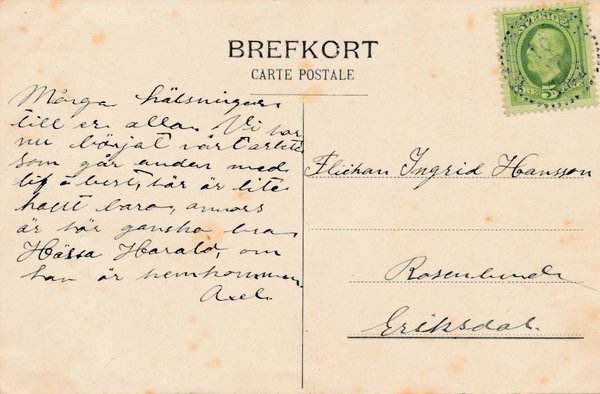 BREFKORT
CARTE POSTALE
SVERIGE
5
Många hälsningar
till er alla. Vi har
nu börjat vårt arbete
som går undan med
lif å
är lite
bara, annars
är här ganska bra
Hälsa Harald, om
han är hemkommen
Axel.
Flickan Ingrid Hansson
Rosenlund
Eriksdal.